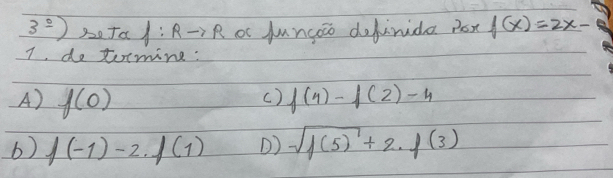 3º) seja f: R→R a função definida por f(x)=2x-
1. de termine:
A) f(0) c) f(4)-f(2)-4
b) f(-1)-2.f(1) D) √f(5) + 2.f(3)